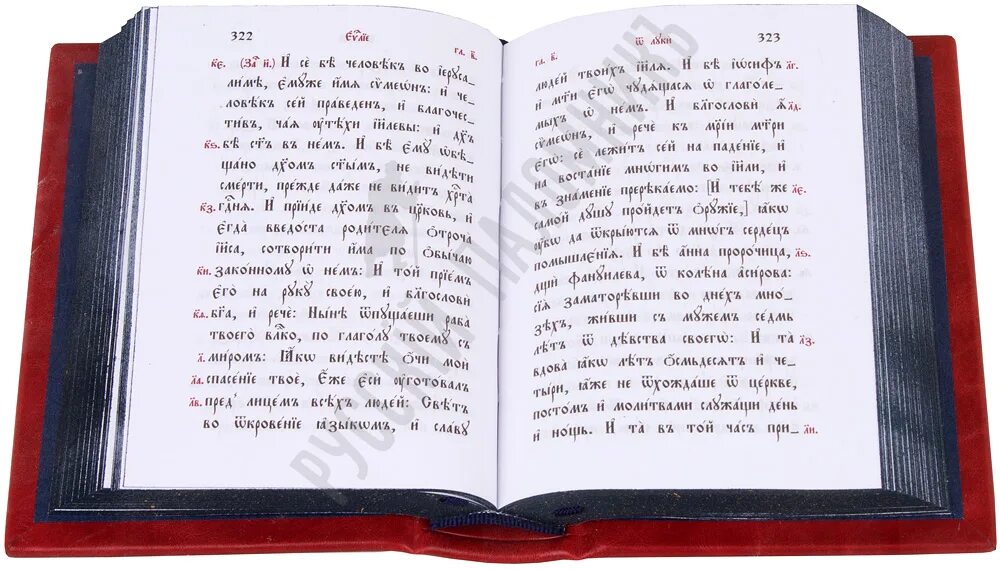 322 Е҆ѵⷢ҇лїе гл. в҃.
к҃є. (За҄ и҃.) И҆ сѐ бѣ̀ человѣ́къ во і҆ерꙋса-
ли́мѣ, є҆мꙋ́же и҆́мѧ сѷмеѡ́нъ: и҆ че-
ловѣ́къ се́й пра́веденъ, и҆ благочес-
ти́въ, ча́ѧ ᲂу҆тѣ́хи і҆и҃левы: и҆ дх҃ъ
к҃ѕ. бѣ̀ ст҃ъ въ не́мъ. И҆ бѣ̀ є҆мꙋ̀ ѡ҆бѣ-
ща́но дх҃омъ ст҃ы́мъ, не ви́дѣти
сме́рти, пре́жде да́же не ви́дитъ хрⷭ҇та̀
к҃з. гдⷭ҇нѧ. И҆ прїи́де дх҃омъ въ цр҃ковь, и҆
є҆гда̀ введо́ста роди́телѧ ѻ҆троча̀
і҆и҃са, сотвори́ти и҆́ма по ѻ҆бы́чаю
к҃и. зако́нномꙋ ѡ҆ не́мъ: И҆ то́й прїе́мъ
є҆го̀ на рꙋкꙋ̀ своє́ю, и҆ блгⷭ҇ловѝ
к҃ѳ. бг҃а, и҆ речѐ: Ны́нѣ ѿпꙋща́еши раба̀
твоего̀ влⷣко, по глаго́лꙋ твоемꙋ̀ съ
л҃. ми́ромъ: Ꙗ҆́кѡ ви́дѣстѣ ѻ҆́чи моѝ
л҃а. спасе́нїе твоѐ, Є҆́же є҆сѝ ᲂу҆гото́валъ
л҃в. пред̾ лице́мъ всѣ́хъ люде́й: Свѣ́тъ
во ѿкрове́нїе ꙗ҆зы́кѡмъ, и҆ сла́вꙋ
гл. в҃. ѿ лꙋкѝ 323
люде́й твои́хъ і҆и҃лѧ. И҆ бѣ̀ і҆ѡ́сифъ л҃г.
и҆ мт҃и є҆гѡ̀ чꙋдѧ́щасѧ ѡ҆ глаго́ле-
мыхъ ѡ҆ не́мъ. И҆ блгⷭ҇ловѝ ѧ҆̀ л҃д.
сѷмеѡ́нъ, и҆ речѐ къ мр҃і́и мт҃ри
є҆гѡ̀: сѐ лежи́тъ се́й на паде́нїе, и҆
на воста́нїе мнѡ́гимъ во і҆и҃ли, и҆
въ зна́менїе пререка́емо: [И҆ тебѣ́ же л҃є.
само́й дꙋ́шꙋ про́йдетъ ѻ҆рꙋ́жїе,] ꙗ҆́кѡ
ᲂу҆́бѡ да ѿкры́ютсѧ ѿ мно́гъ серде́цъ
помышлє́нїѧ. И҆ бѣ̀ а҆́нна проро́чица, л҃ѕ.
дщѝ фанꙋи́лева, ѿ колѣ́на а҆си́рова:
сїѧ̀ заматорѣ́вши во дне́хъ мно́-
зѣхъ, жи́вши съ мꙋ́жемъ се́дмь
лѣ́тъ ѿ дѣ́вства своегѡ̀: И҆ та̀ л҃з.
вдова̀ ꙗ҆́кѡ лѣ́тъ ѻ҆́смьдесѧтъ и҆ че-
ты́ри, ꙗ҆́же не ѿхожда́ше ѿ це́ркве,
посто́мъ и҆ моли́твами слꙋжа́щи де́нь
и҆ но́щь. И҆ та̀ въ то́й ча́съ при- л҃и.
РУССКИЙ ПАЛОМНИКЪ